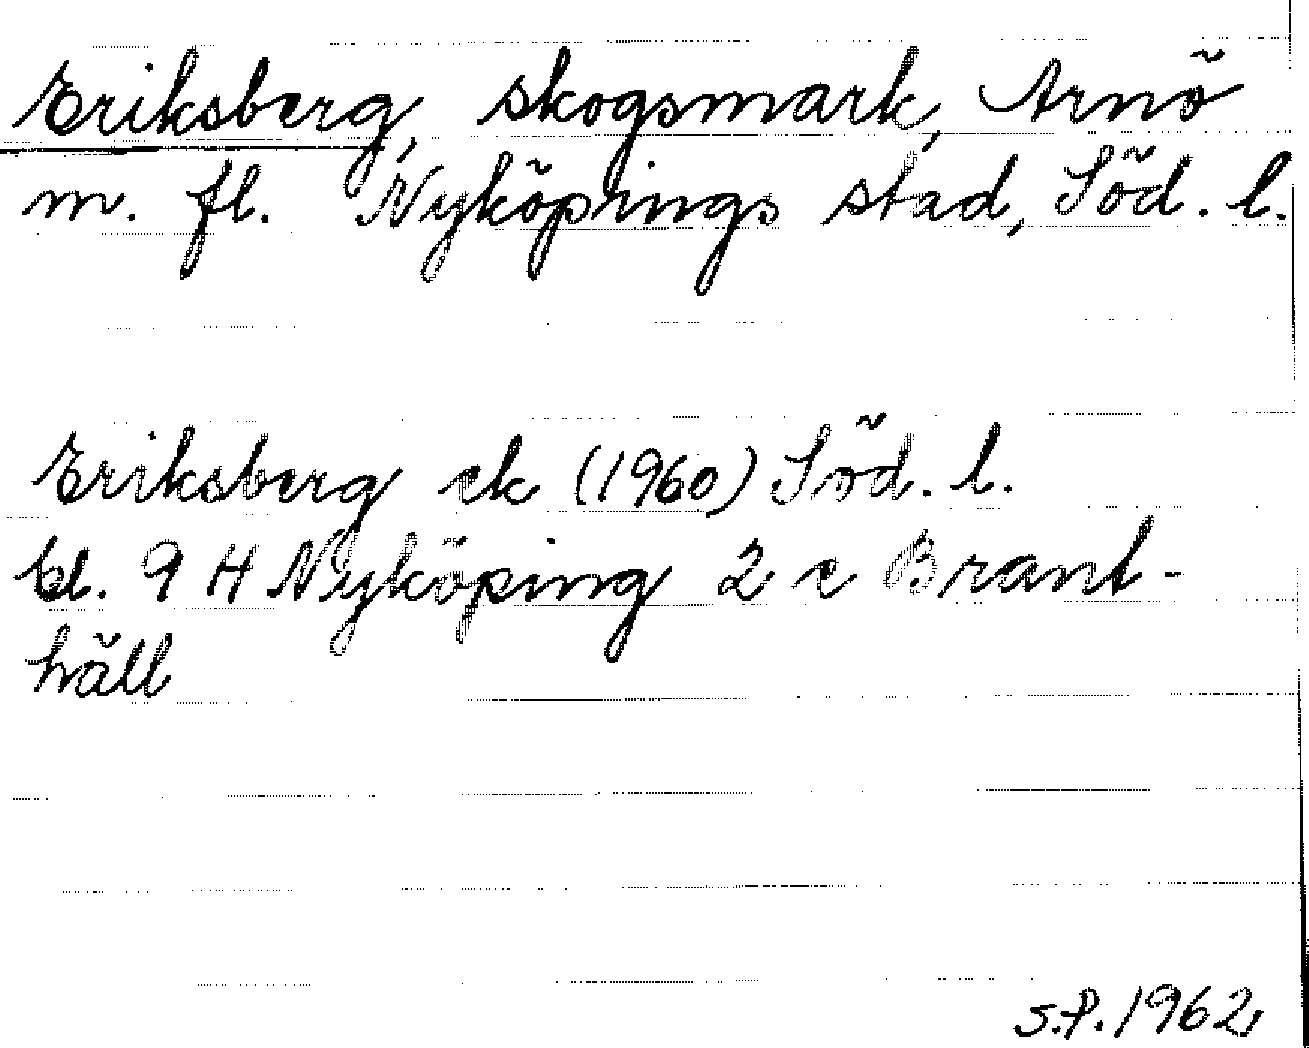 Eriksberg, skogsmark, Arnö
m. fl. Nyköpings stad, Söd. l.
Eriksberg ek (1960) Söd. l.
bl. 9 H Nyköping 2 c Brant-
häll
S.P. 1962